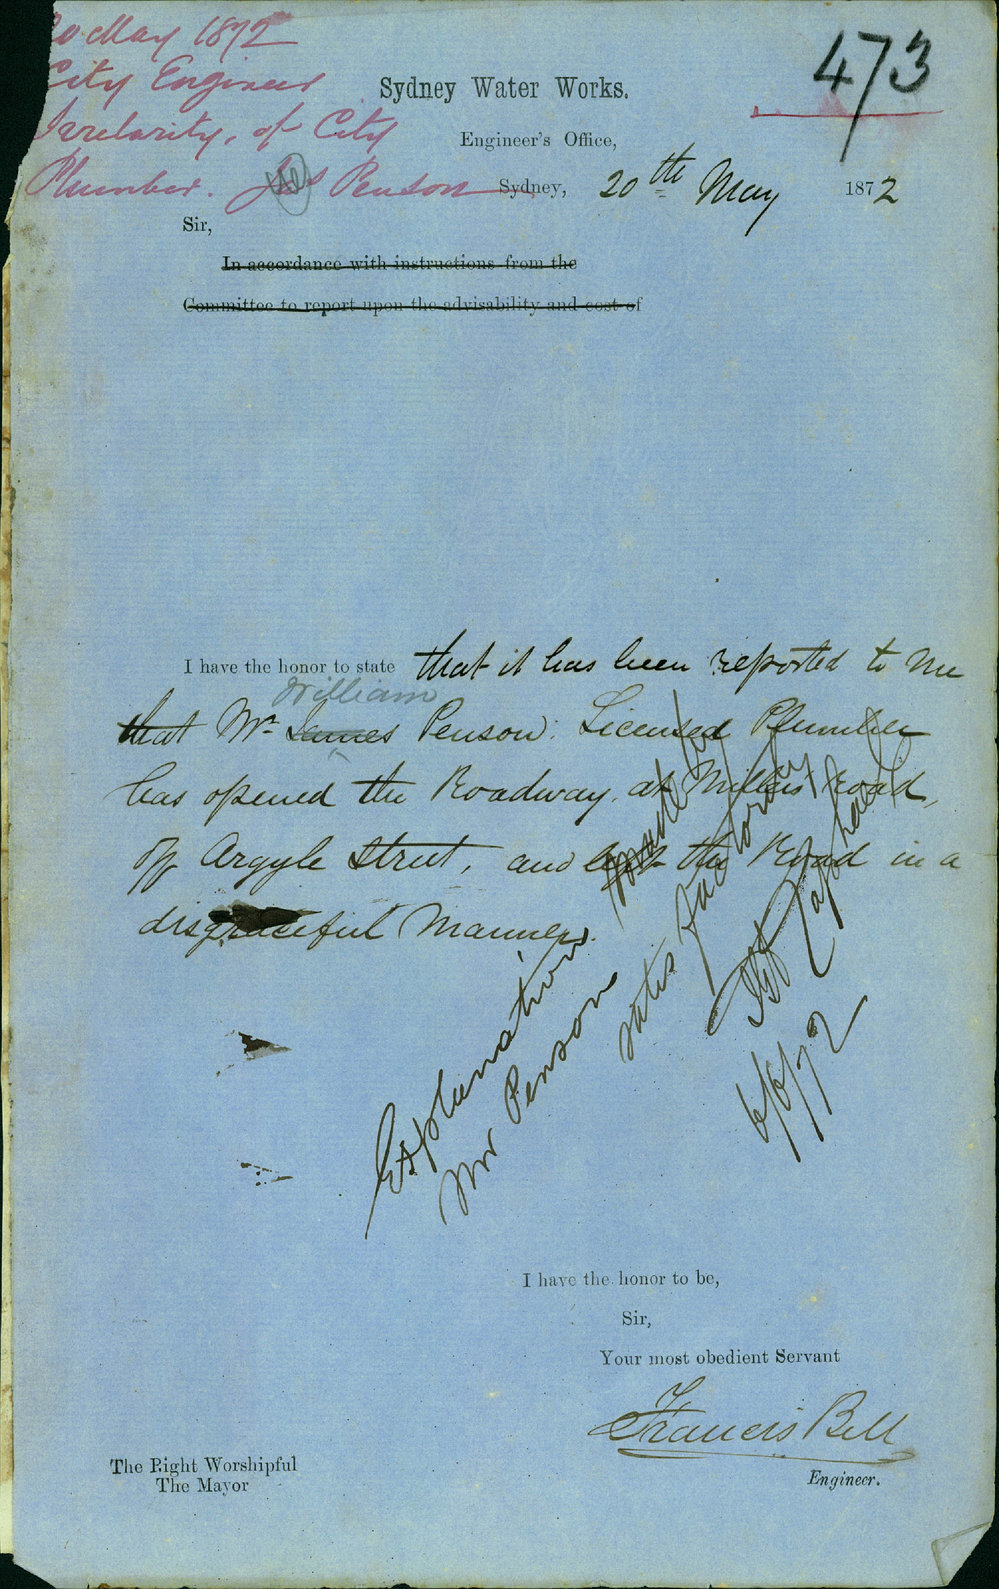 20 May 1872
City Engineer
Irrelarity, of City
Plumber. Jas Penson
473
Sydney Water Works.
Engineer's Office,
Sydney, 20th May 1872
Sir,
In accordance with instructions from the
Committee to report upon the advisability and cost of
I have the honor to state that it has been reported to me
William
that Mr. James Penson. Licensed Plumber
has opened the Roadway, at Millers Road,
off Argyle Street, and left the Road in a
disgraceful Manner.
Explanation
Mr Penson
satisfactory
6/6/72
I have the honor to be,
Sir,
Your most obedient Servant
Francis Bell
Engineer.
The Right Worshipful
The Mayor